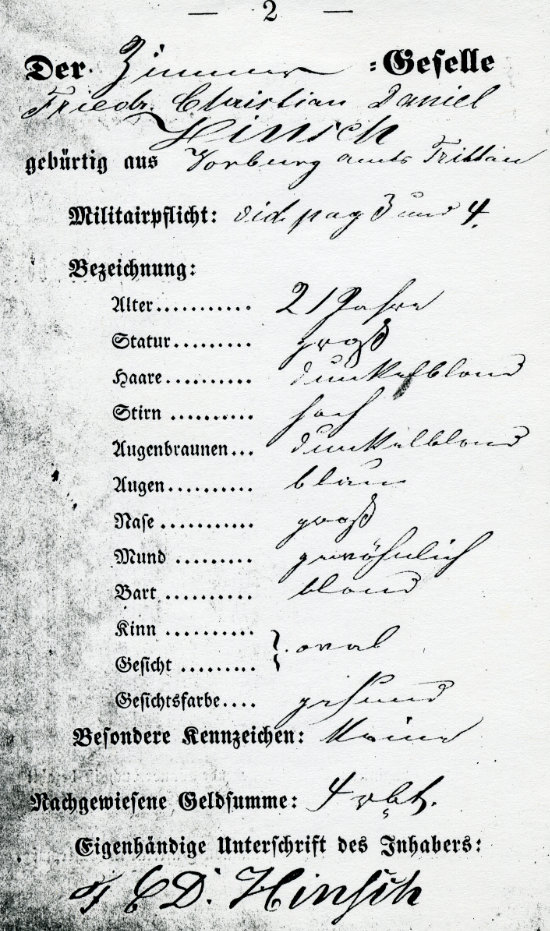 — 2 —
Der Zimmer =Geselle
Friedr. Christian Daniel
Hinsch
gebürtig aus Vorburg amts Trittau
Militairpflicht: vid. pag 3 und 4.
Bezeichnung:
Alter........... 21 Jahre
Statur......... groß
Haare.......... dunkelblond
Stirn ......... hoch
Augenbraunen... dunkelblond
Augen.......... blau
Nase ........... groß
Mund ......... gewöhnlich
Bart .......... blond
Kinn ..........
Gesicht ......... } oval
Gesichtsfarbe.... gesund
Besondere Kennzeichen: Keine
Nachgewiesene Geldsumme: 4 rbt.
Eigenhändige Unterschrift des Inhabers:
F C D. Hinsch